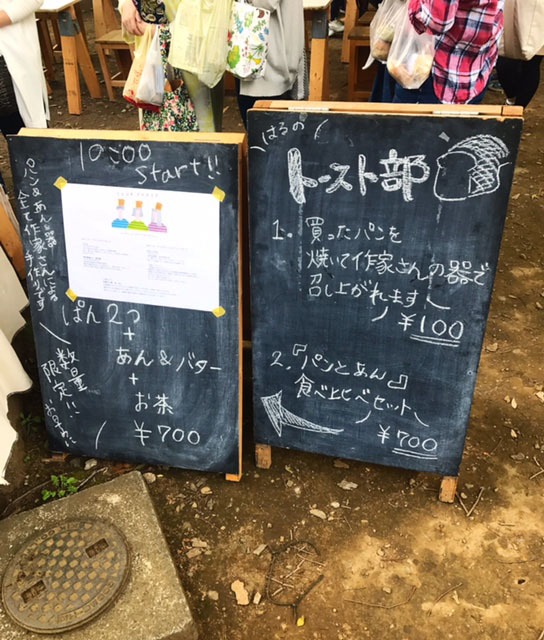 10:00
start!!
パン&あん&器
全て作家さんによる
手作りです
ぱん2つ
+
あん&バター
+
お茶
¥700
数量
限定!!
お早めに
はるの
トースト部
1. 買ったパンを
焼いて作家さんの器で
召し上がれます
¥100
2.『パンとあん』
食べ比べセット
¥700